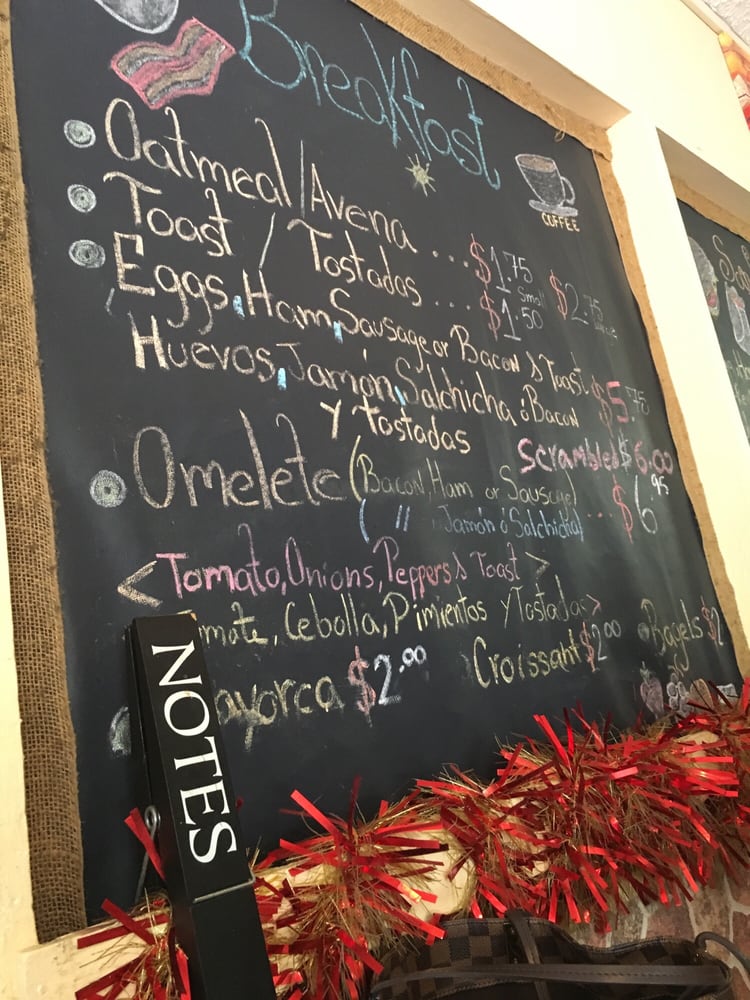 Breakfast
COFFEE
Oatmeal/Avena .... $1.75 Small $2.75
Toast / Tostadas .... $1.50
Eggs, Ham, Sausage or Bacon & Toast
Huevos, Jamón, Salchicha ó Bacon $5.75
y tostadas
Scrambled $6.00
Omelete (Bacon, Ham or Sausage)
( " Jamón ó Salchicha) ... $6.95
<Tomato, Onions, Peppers & Toast>
mate, Cebolla, Pimientos y Tostadas>
ayorca $2.00 Croissant $2.00 Bagels $2
NOTES